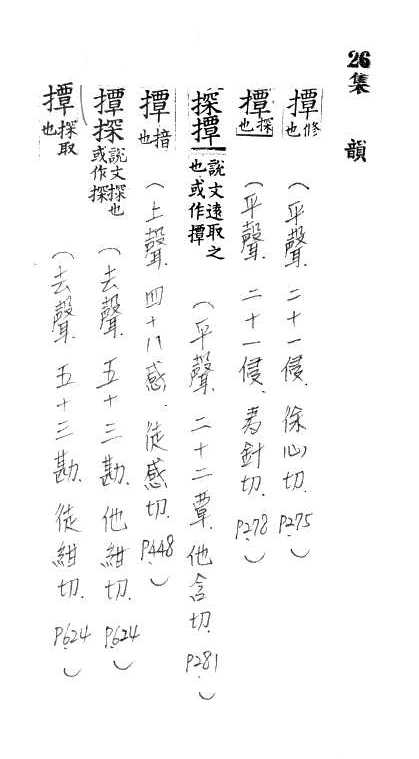 26集韻
撢修也(平聲. 二十一侵. 徐心切. P.275)
撢探也(平聲 二十一侵. 夷針切. P.278)
探撢說文遠取之也或作撢(平聲. 二十二覃. 他含切. P.281)
撢揞也(上聲 四十八感. 徒感切. P.448)
撢探說文探也或作探(去聲. 五十三勘. 他紺切. P.624)
撢探取也(去聲. 五十三勘. 徒紺切. P.624)